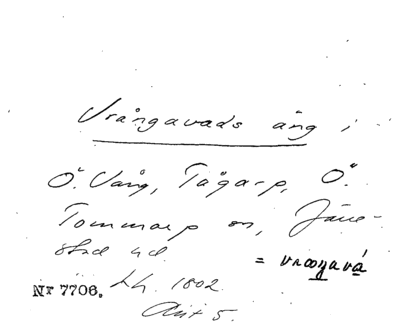 Vrångavads äng i
Ö. Vång, Tågarp, Ö.
Tommarp sn, Järre-
stad hd
= vraŋavá
Nr 7706. Lh. 1802
Akt 5.